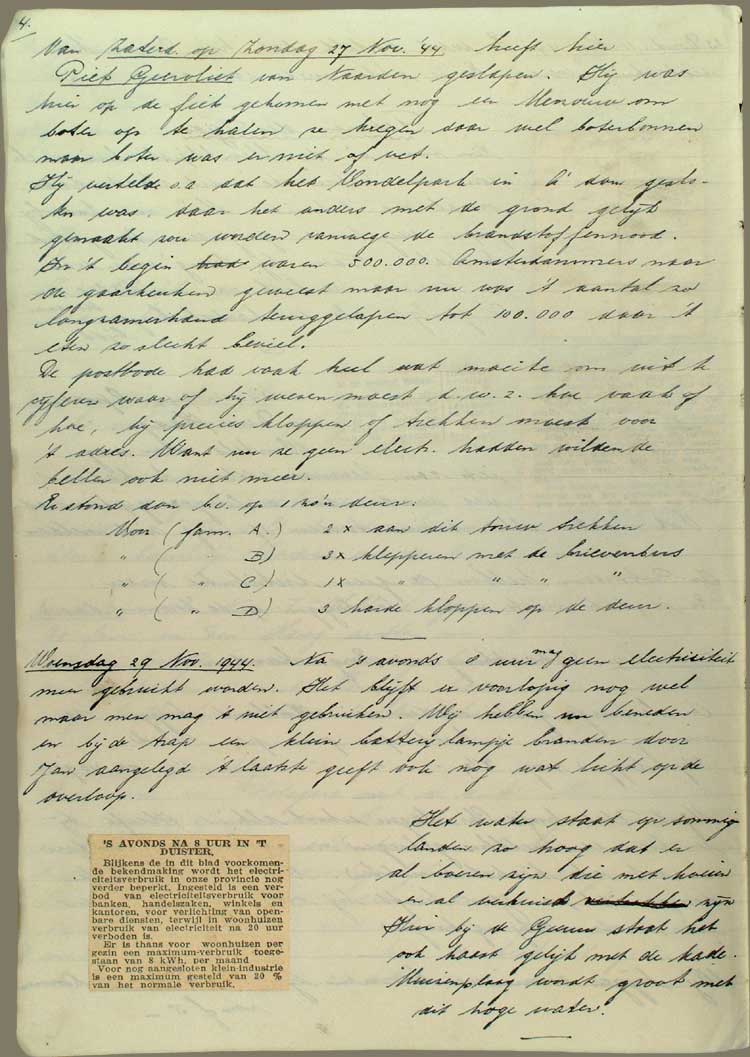 4.
Van Zaterd. op Zondag 27 Nov. '44 heeft hier
Piet Geervliet van Naarden geslapen. Hij was
hier op de fiets gekomen met nog een Mevrouw om
boter op te halen ze kregen daar wel boterbonnen
maar boter was er niet of vet.
Hij vertelde o.a dat het Vondelpark in A'dam geslo-
ten was. daar het anders met de grond gelijk
gemaakt zou worden vanwege de brandstoffennood.
In 't begin had waren 300.000. Amsterdammers naar
de gaarkeuken geweest maar nu was 't aantal zo
langzamerhand teruggelopen tot 100.000 daar 't
eten zo slecht beviel.
De postbode had vaak heel wat moeite om uit te
cyferen waar of hij wezen moest d.w.z. hoe vaak of
hoe, hij precies kloppen of trekken moest voor
't adres. Want nu ze geen electr. hadden wilden de
bellen ook niet meer.
Er stond dan bv. op 1 zo'n deur:
Voor (fam. A.) 2 x aan dit touw trekken
" ( " B) 3x klepperen met de brievenbus
" ( " C) 1x " " " "
" ( " D) 3 harde kloppen op de deur.
Woensdag 29 Nov. 1944. Na 's avonds 8 uur mag geen electriciteit
meer gebruikt worden. Het blijft er voorlopig nog wel
maar men mag 't niet gebruiken. Wij hebben nu beneden
en bij de trap een klein batterij lampje branden door
Jan aangelegd 't laatste geeft ook nog wat licht op de
overloop.
Het water staat op sommige
landen zo hoog dat er
al boeren zijn die met hooien
en al verhuisd zijn
Hier bij de staat het
ook haast gelijk met de kade.
Muizenplaag wordt groot met
dit hoge water.
'S AVONDS NA 8 UUR IN 'T
DUISTER.
Blijkens de in dit blad voorkomen-
de bekendmaking wordt het electri-
citeitsverbruik in onze provincie nog
verder beperkt. Ingesteld is een ver-
bod van electriciteitsverbruik voor
banken, handelszaken, winkels en
kantoren, voor verlichting van open-
bare diensten, terwijl in woonhuizen
verbruik van electriciteit na 20 uur
verboden is.
Er is thans voor woonhuizen per
gezin een maximum-verbruik toege-
staan van 8 kWh. per maand
Voor nog aangesloten klein-industrie
is een maximum gesteld van 20 %
van het normale verbruik.